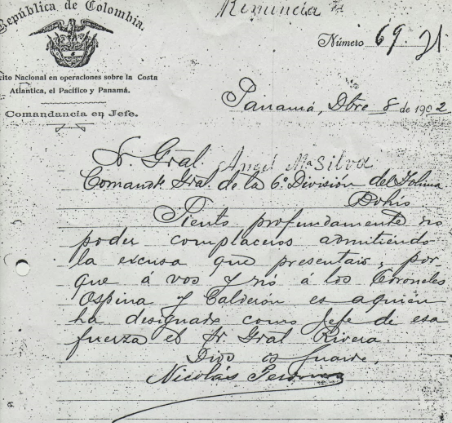 República de Colombia.
Renuncia
Número 69
cito Nacional en operaciones sobre la Costa
Atlantica, el Pacífico y Panamá.
Comandancia en Jefe.
Panamá, Dbre 8 de 1902
Sr Gral. Angel Ma Silva
Comandte Gral. de la 6a División del Tolima
Bohio
Siento profundamente no
poder complaceros admitiendo
la excusa que presentais, por
que á vos y nó á los Coroneles
Ospina y Calderón es a quien
ha designado como Jefe de esa
fuerza el Sr Gral Rivera.
Dios os guarde.
Nicolás